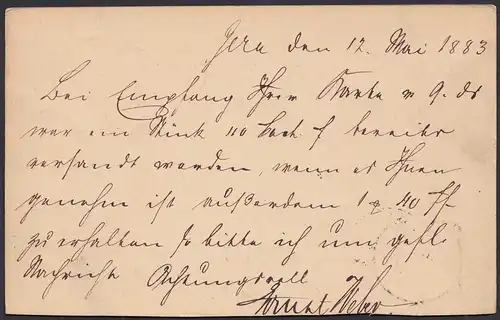 Gera den 12. Mai 1883
Bei Empfang Ihrer Karte v 9. ds
war ein Stück 40 bereits
versandt worden, wenn es Ihnen
genehm ist außerdem 1 40 ff
zu erhalten so bitte ich um gefl.
Nachricht Achtungsvoll
Ernst Weber